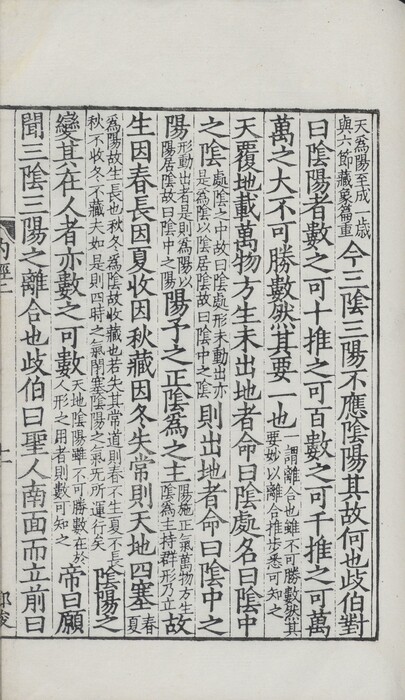 天為陽至成一歲與六節藏象篇重今三陰三陽不應陰陽其故何也歧伯對
曰陰陽者數之可十推之可百數之可千推之可萬
萬之大不可勝數然其要一也一謂離合也雖不可勝數然其要妙以離合推步悉可知之
天覆地載萬物方生未出地者命曰陰處名曰陰中
之陰處陰之中故曰陰處形未動出亦是為陰以陰居陰故曰陰中之陰則出地者命曰陰中之
陽形動出者是則為陽以陽居陰故曰陰中之陽陽予之正陰為之主陽施正氣萬物方生陰為主持群形乃立故
生因春長因夏收因秋藏因冬失常則天地四塞春夏
為陽故生長也秋冬為陰故收藏也若失其常道則春不生夏不長秋不收冬不藏夫如是則四時之氣閉塞陰陽之氣无所運行矣陰陽之
變其在人者亦數之可數天地陰陽雖不可勝數在於人形之用者則數可知之帝曰願
聞三陰三陽之離合也歧伯曰聖人南面而立前曰
內經二
十